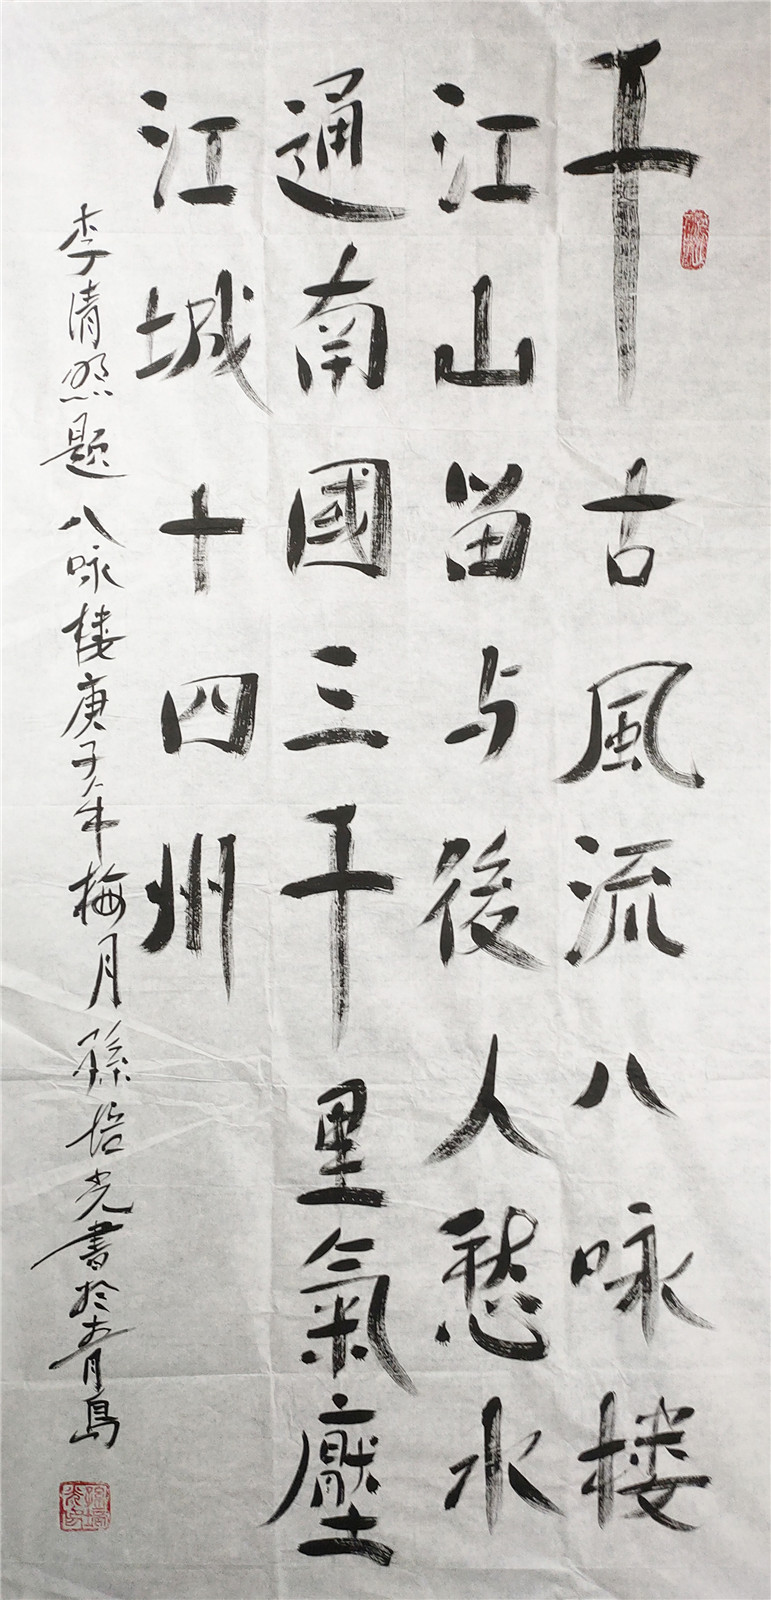 千古風流八咏楼
江山留与後人愁水
通南國三千里氣壓
江城十四州
李清照题八咏楼庚子年梅月孫培光書於青島